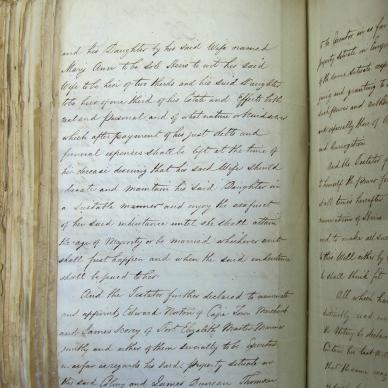 and his Daughter by his said Wife named
Mary Ann to be sole Heirs to wit his said
Wife to be heir of two thirds and his said Daughter
to be heir of one third of his Estate and Effects both
real and personal and of what nature or kind soever
which after payment of his just debts and
funeral expenses shall be left at the time of
his decease desiring that his said Wife should
educate and maintain his said Daughter in
a suitable manner and enjoy the usufruct
of her said inheritance until she shall attain
the age of Majority or be married whichever event
shall first happen and when the said inheritance
shall be paid to her
And the Testator further declared to nominate
and appoint Edward Norton of Cape Town Merchant
and James Berry of Port Elizabeth Master Mariner
jointly and either of them severally to be Executor
in as far as regards his said property situate in
this said Colony and James Duncan Thomson
to be Executor in as far
property situate in
of the same
going and granting to
such powers and
and especially those of
and Surrogation
And the Testator
to himself the power
shall
nomination of Heirs
and to make all such
this Will either by
he shall think fit
All which